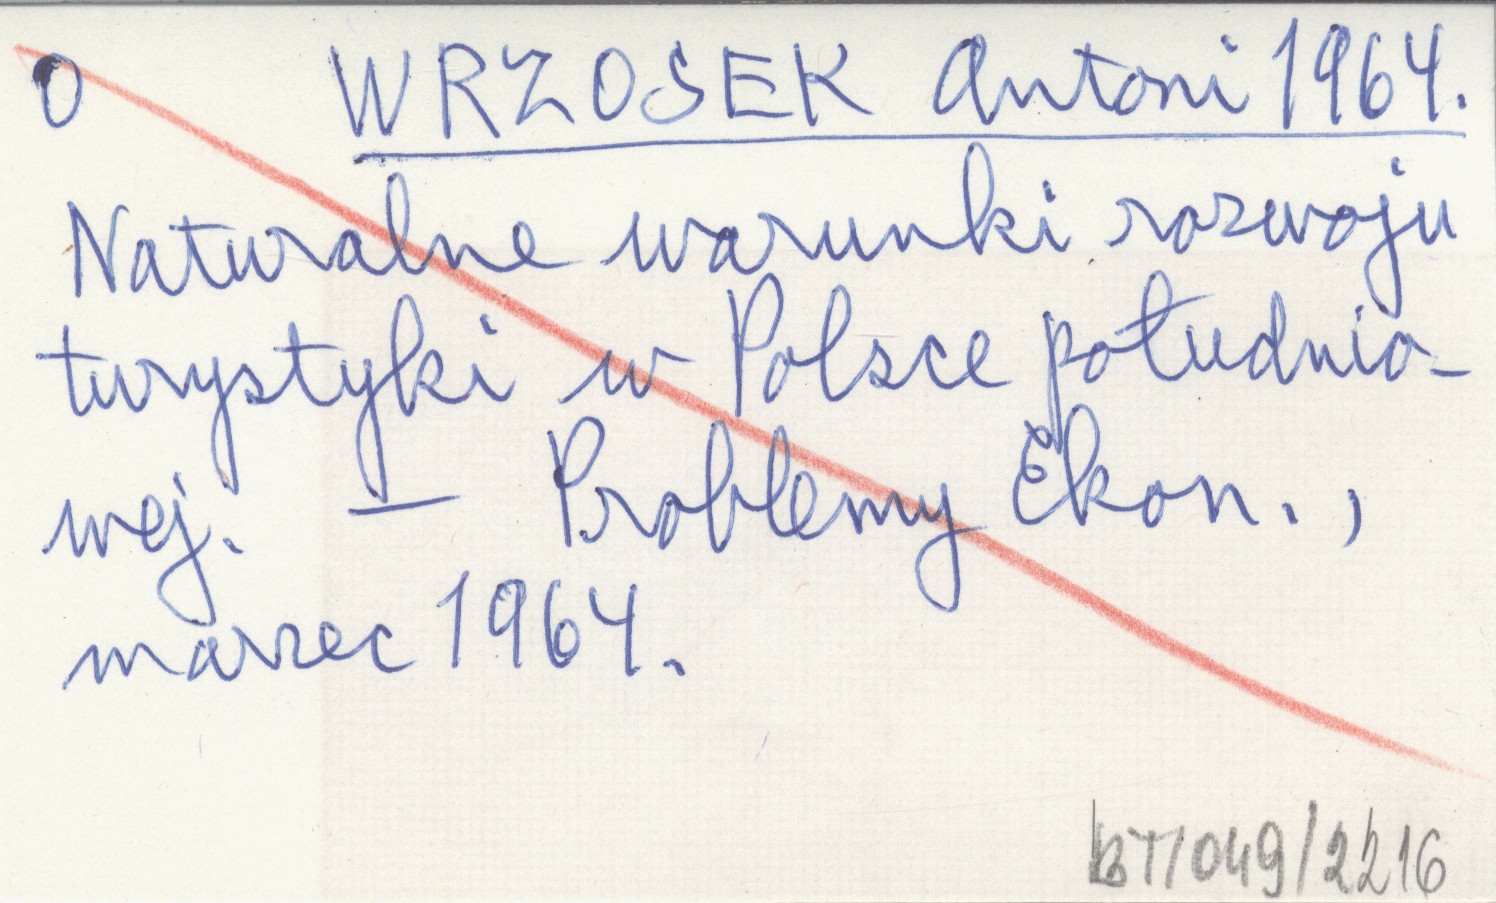 O WRZOSEK Antoni 1964.
Naturalne warunki rozwoju
turystyki w Polsce południo-
wej. — Problemy Ekon.,
marzec 1964.
BT/049/2216